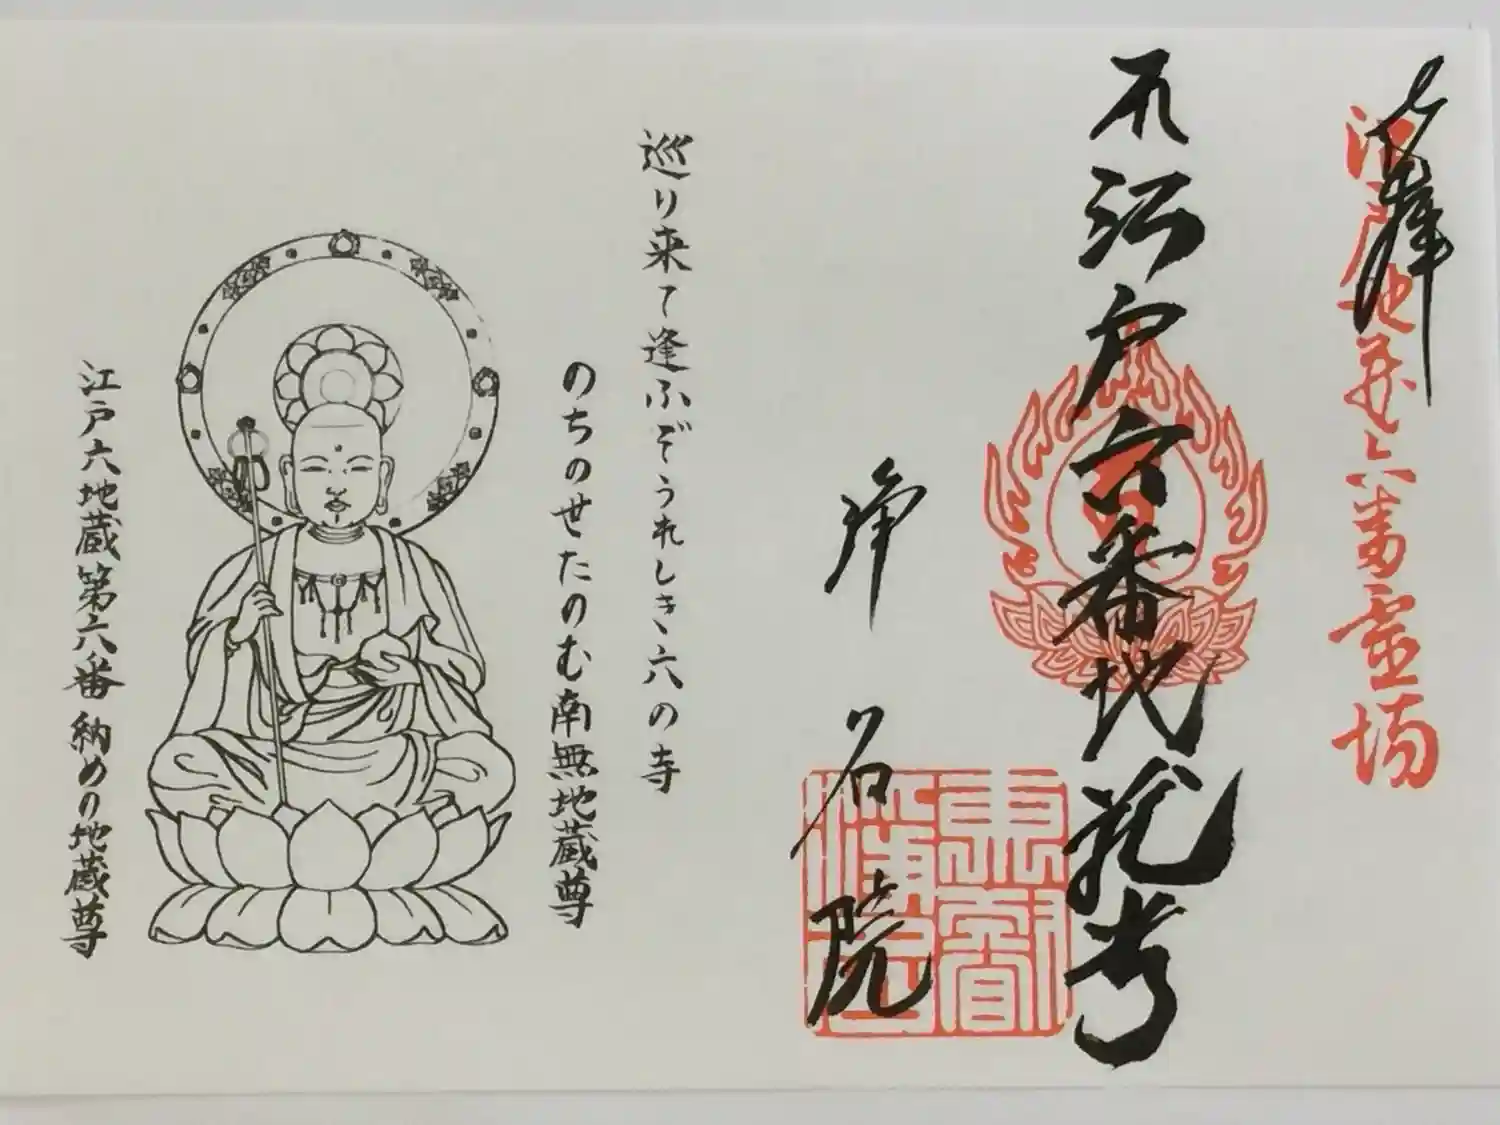 江戸地蔵六番霊場
江戸六番地蔵尊
浄名院
巡り来て逢ふぞうれしき六の寺
のちのせたのむ南無地蔵尊
江戸六地蔵第六番 納めり地蔵尊